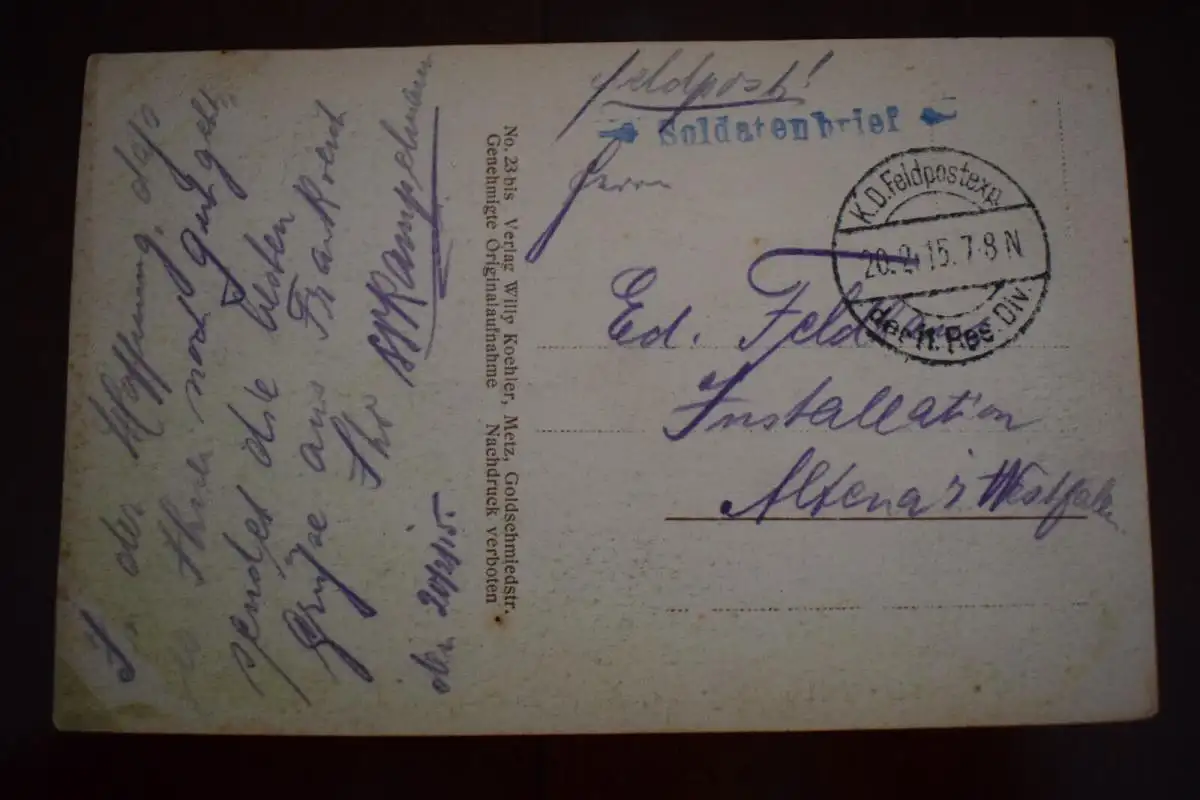 In der Hoffnung, daß
es Ihnen noch gut geht,
sendet die besten
Grüße aus Frankreich
Ihr
den 20/2/15.
No. 23-bis Verlag Willy Koehler, Metz, Goldschmiedstr.
Genehmigte Originalaufnahme Nachdruck verboten
Feldpost!
Soldatenbrief
Herrn
K.D.Feldpostexp.
20.2.15.7-8 N
der 11. Res. Div.
Ed.
Installation
Altena i Westfalen